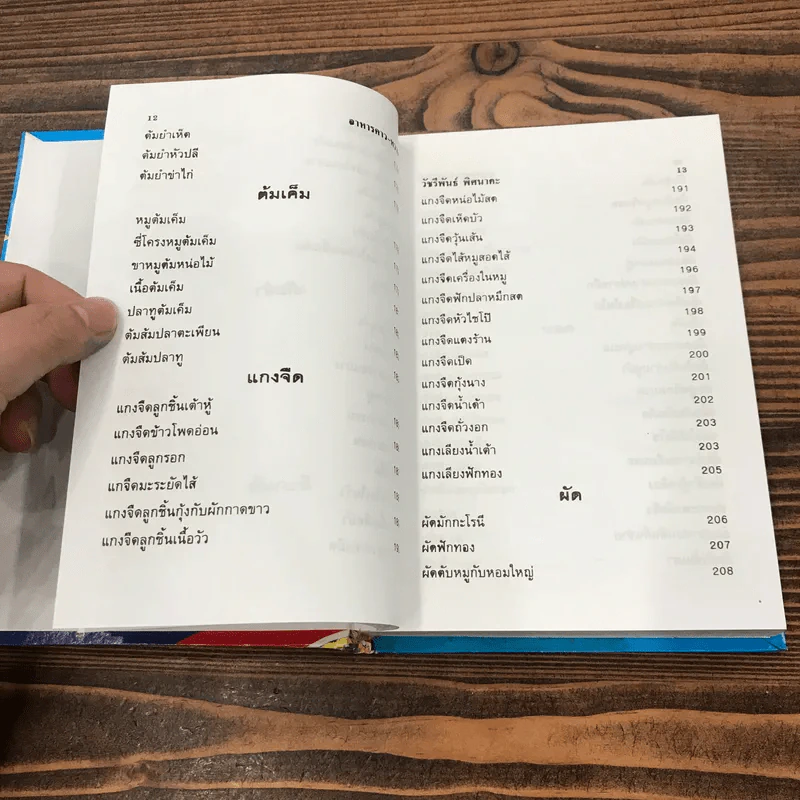 12
อาหารคาว
ต้มยำเห็ด
ต้มยำหัวปลี
ต้มยำข่าไก่
ต้มเค็ม
หมูต้มเค็ม
ซี่โครงหมูต้มเค็ม
ขาหมูต้มหน่อไม้
เนื้อต้มเค็ม
ปลาทูต้มเค็ม
ต้มส้มปลาตะเพียน
ต้มส้มปลาทู
แกงจืด
แกงจืดลูกชิ้นเต้าหู้
แกงจืดข้าวโพดอ่อน
แกงจืดลูกรอก
แกจืดมะระยัดไส้
แกงจืดลูกชิ้นกุ้งกับผักกาดขาว
แกงจืดลูกชิ้นเนื้อวัว
วัชรีพันธ์ พิศนาคะ 13
แกงจืดหน่อไม้สด 191
แกงจืดเห็ดบัว 192
แกงจืดวุ้นเส้น 193
แกงจืดไส้หมูสอดไส้ 194
แกงจืดเครื่องในหมู 196
แกงจืดฟักปลาหมึกสด 197
แกงจืดหัวไชโป๊ 198
แกงจืดแตงร้าน 199
แกงจืดเป็ด 200
แกงจืดกุ้งนาง 201
แกงจืดน้ำเต้า 202
แกงจืดถั่วงอก 203
แกงเลียงน้ำเต้า 203
แกงเลียงฟักทอง 205
ผัด
ผัดมักกะโรนี 206
ผัดฟักทอง 207
ผัดตับหมูกับหอมใหญ่ 208